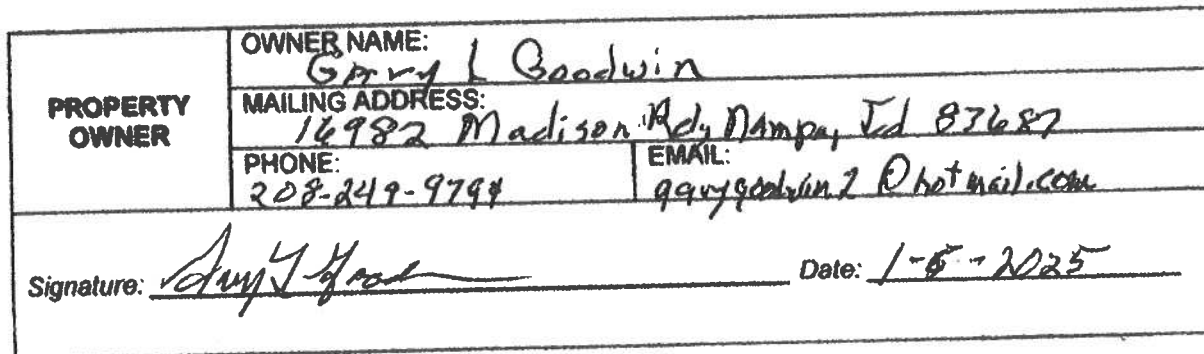 OWNER NAME:
Gary L Goodwin
PROPERTY OWNER
MAILING ADDRESS:
16982 Madison Rd, Nampa, Id 83687
PHONE:
208-249-9794
EMAIL:
garygoodwin2@hotmail.com
Signature:
Date: 1-6-2025